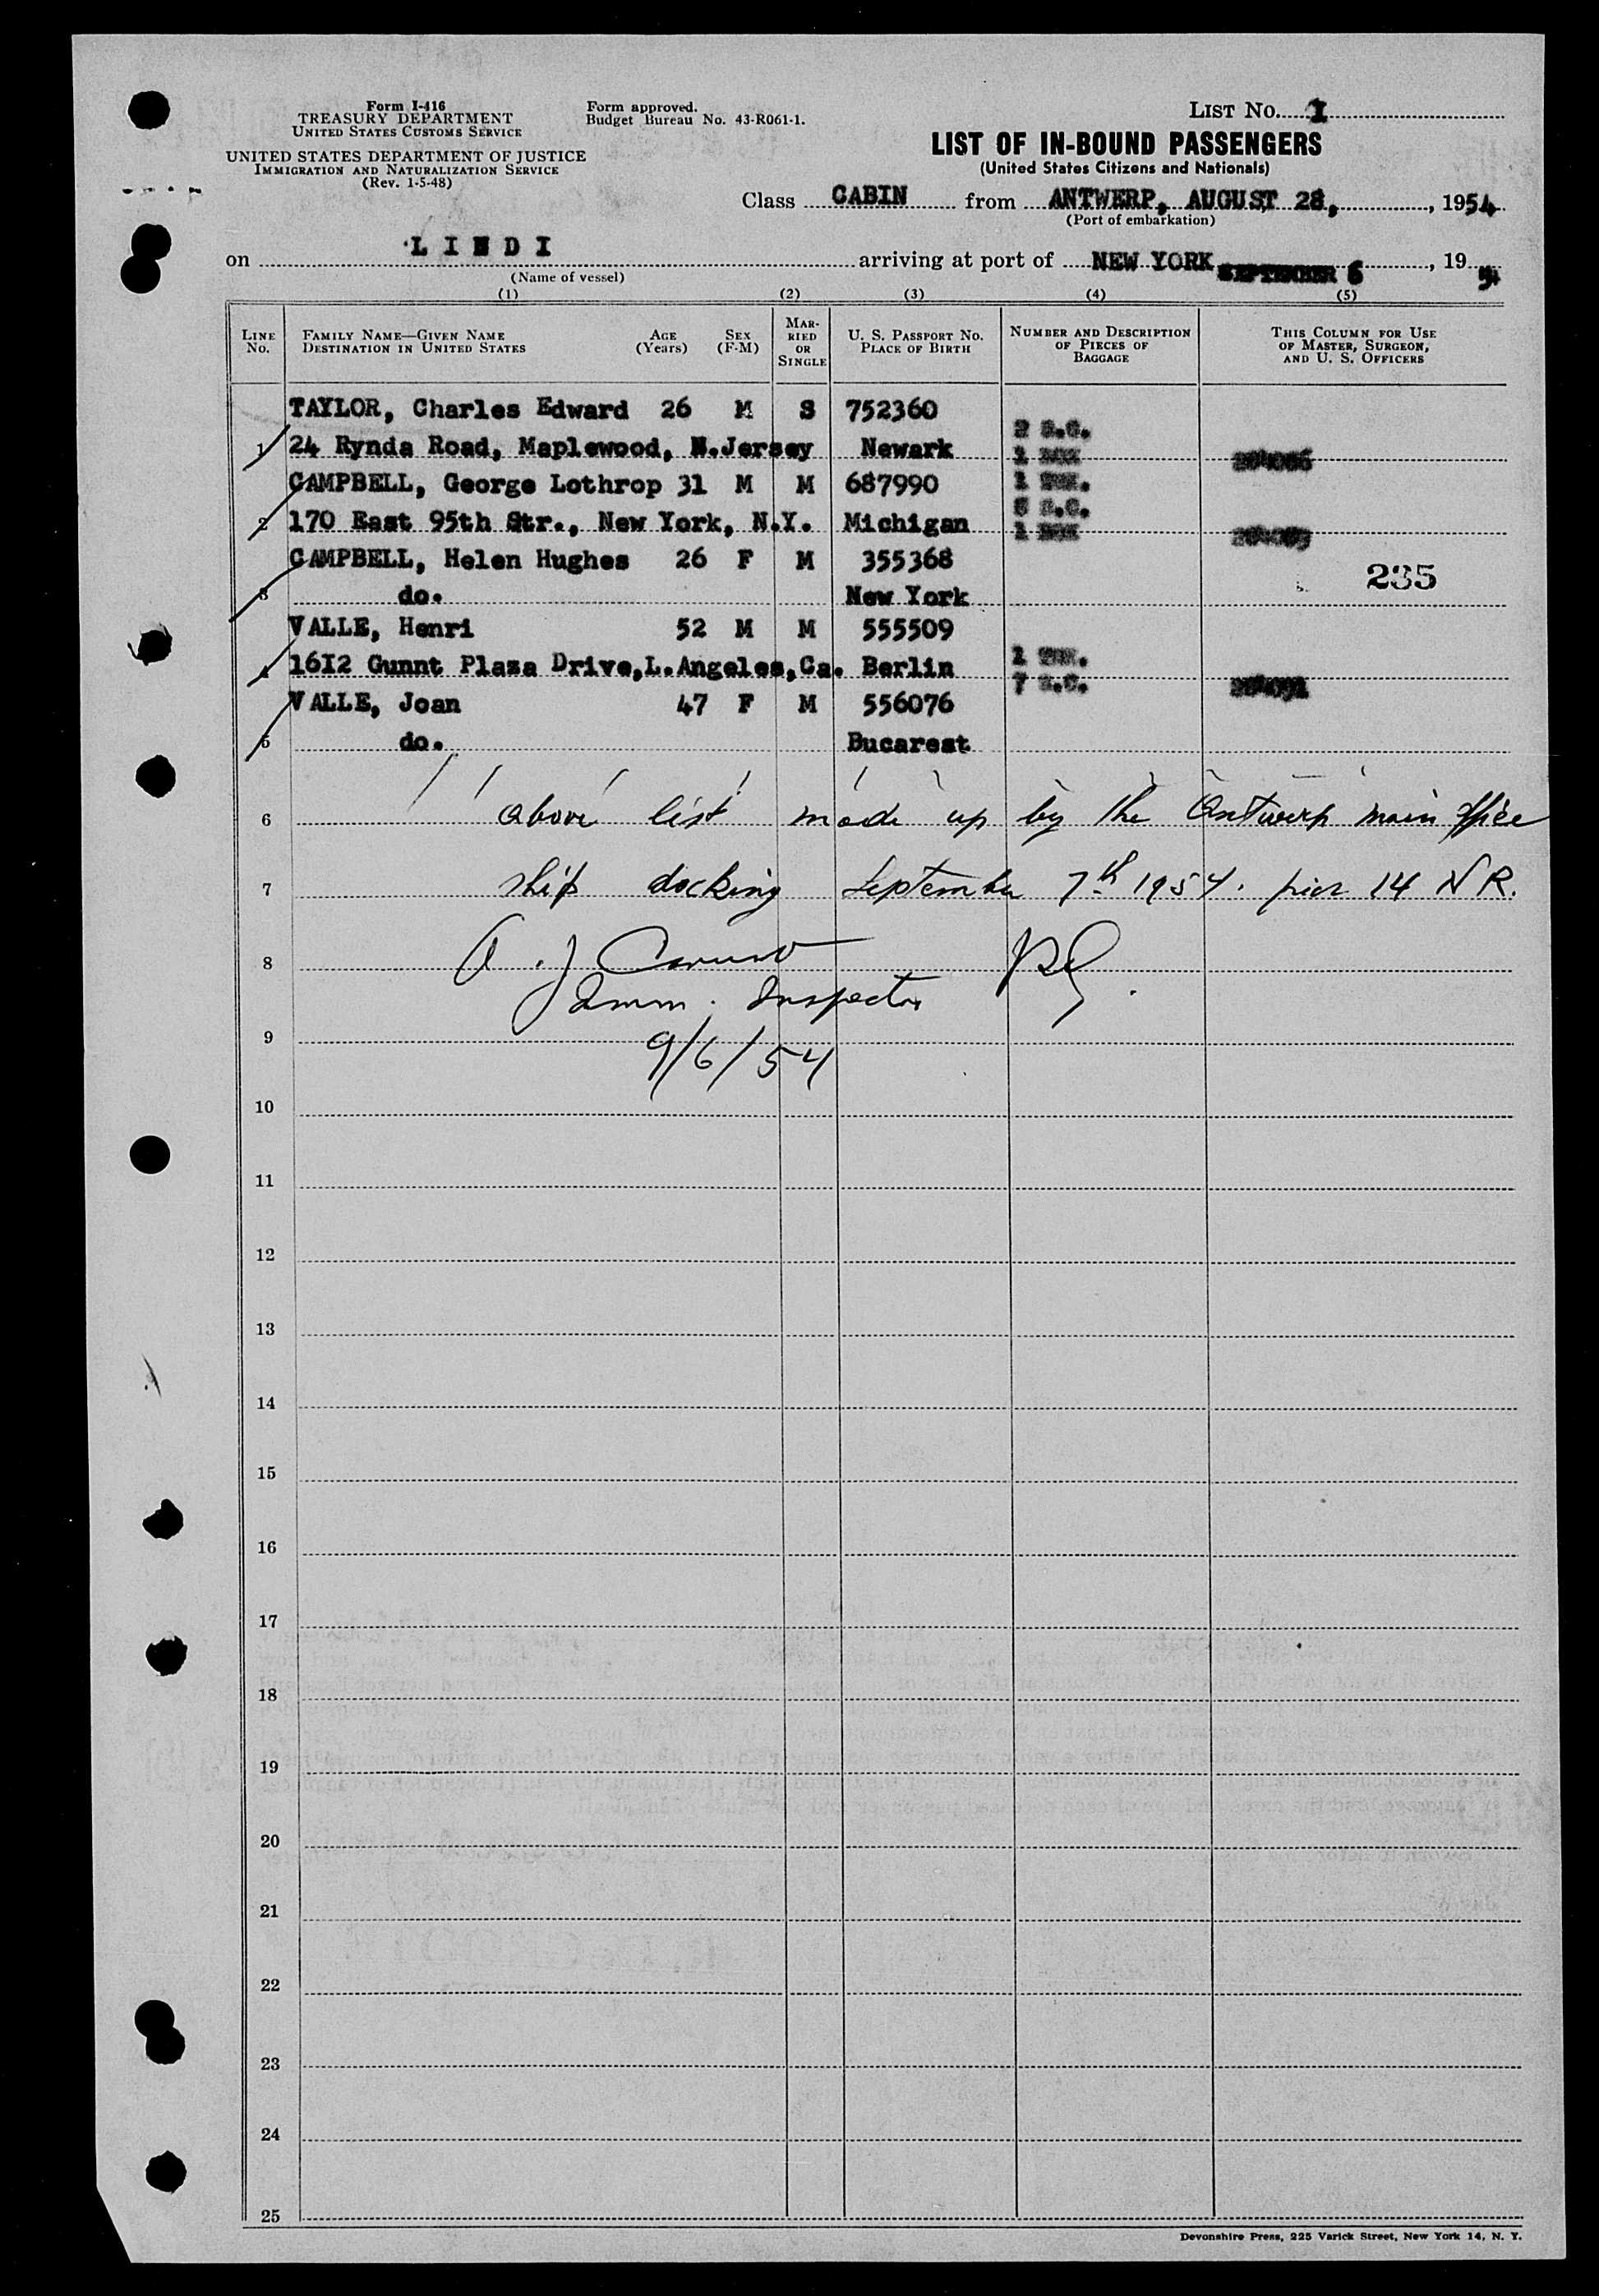 Form I-416
TREASURY DEPARTMENT
UNITED STATES CUSTOMS SERVICE
UNITED STATES DEPARTMENT OF JUSTICE
IMMIGRATION AND NATURALIZATION SERVICE
(Rev. 1-5-48)
Form approved.
Budget Bureau No. 43-R061-1.
LIST No. 1
LIST OF IN-BOUND PASSENGERS
(United States Citizens and Nationals)
Class CABIN from ANTWERP, AUGUST 28, , 1954
(Port of embarkation)
on LINDI arriving at port of NEW YORK SEPTEMBER 6 , 19 54
(Name of vessel)
(1) (2) (3) (4) (5)
LINE No. FAMILY NAME—GIVEN NAME DESTINATION IN UNITED STATES AGE (Years) SEX (F-M) MARRIED OR SINGLE U. S. PASSPORT No. PLACE OF BIRTH NUMBER AND DESCRIPTION OF PIECES OF BAGGAGE THIS COLUMN FOR USE OF MASTER, SURGEON, AND U. S. OFFICERS
TAYLOR, Charles Edward 26 M S 752360
2 S.C.
1 24 Rynda Road, Maplewood, N.Jersey Newark 1 BOX
CAMPBELL, George Lothrop 31 M M 687990 1
S.C.
2 170 East 95th Str., New York, N.Y. Michigan 1 BOX
CAMPBELL, Helen Hughes 26 F M 355368
235
3 do. New York
VALLE, Henri 52 M M 555509
4 1612 Gunnt Plaza Drive,L.Angeles,Ca. Berlin 1
7 S.C.
VALLE, Joan 47 F M 556076
5 do. Bucarest
6 above list made up by the Antwerp main office
7 ship docking September 7th 1954. pier 14 NR.
8 A. J. Caruso
Imm. Inspector
9 9/6/54
10
11
12
13
14
15
16
17
18
19
20
21
22
23
24
25
Devonshire Press, 225 Varick Street, New York 14, N. Y.